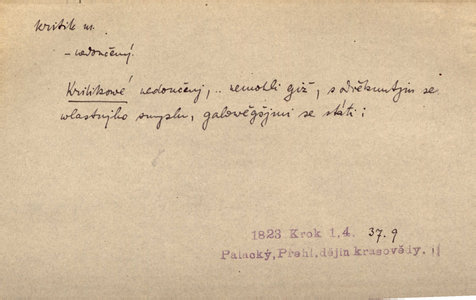 kritik m.
- nedoučený.
Kritikowé nedoučenj, .. nemohli giž, s odřeknutjm se
wlastnjho smyslu, galowěgšjmi se státi;
1823 Krok 1,4. 37.9
Palacký, Přehl. dějin krasovědy.